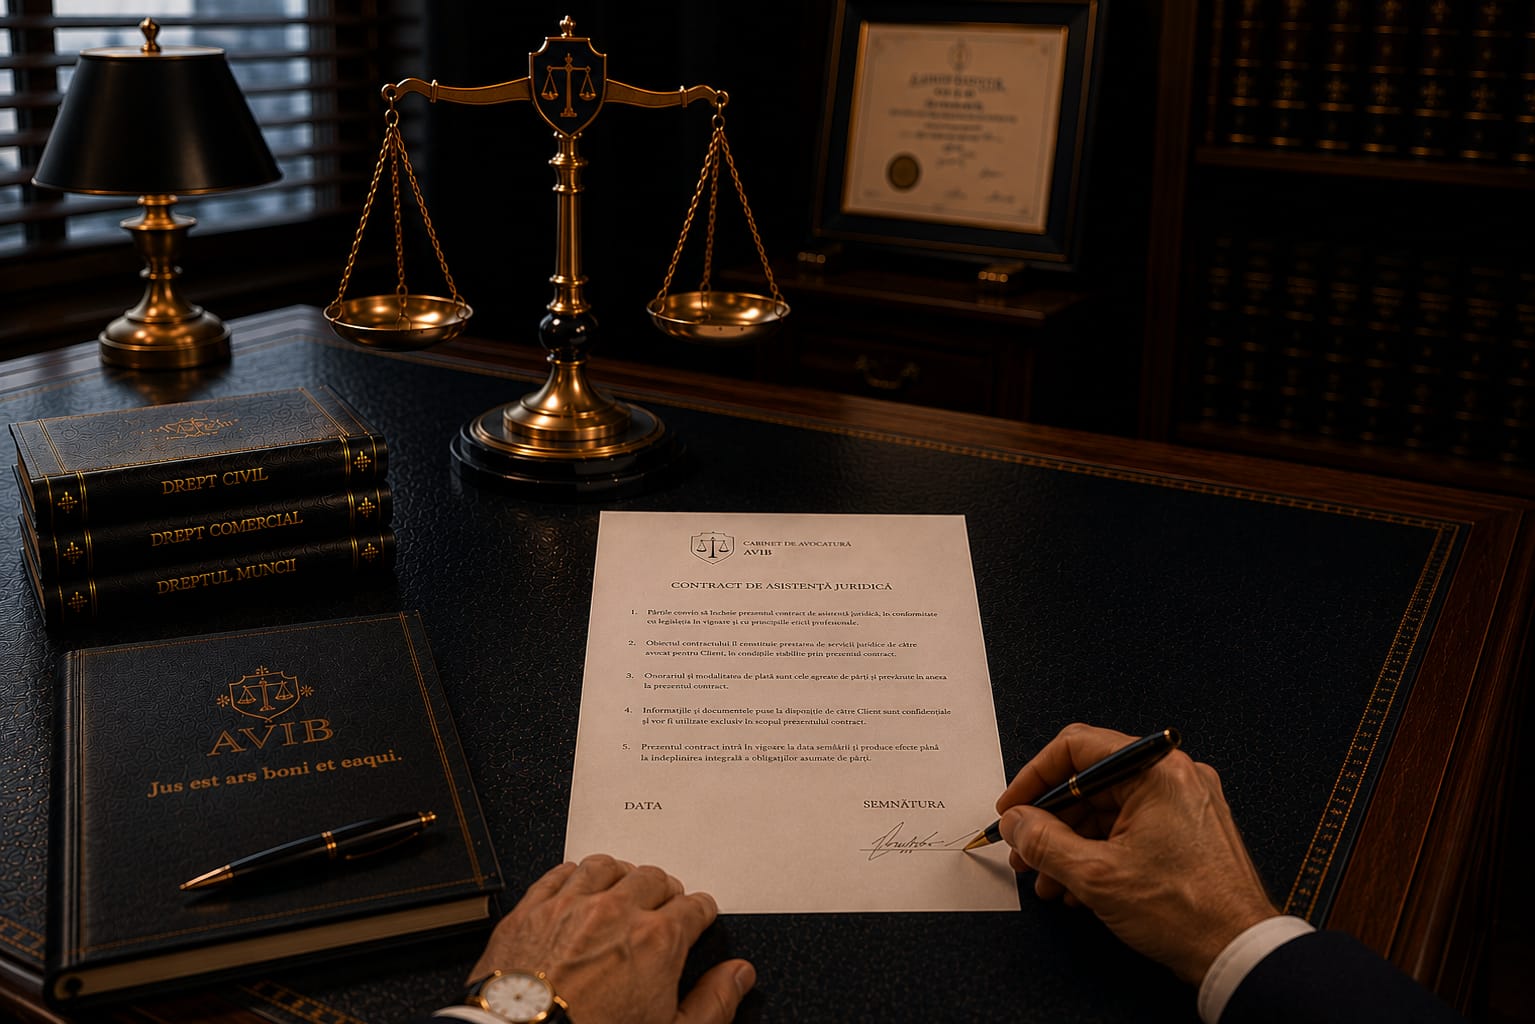 DREPT CIVIL
DREPT COMERCIAL
DREPTUL MUNCII
AVIB
Jus est ars boni et eaqui.
CABINET DE AVOCATURĂ
AVIB
CONTRACT DE ASISTENȚĂ JURIDICĂ
1. Părțile convin să încheie prezentul contract de asistență juridică, în conformitate
cu legislația în vigoare și cu principiile eticii profesionale.
2. Obiectul contractului îl constituie prestarea de servicii juridice de către
avocat pentru Client, în condițiile stabilite prin prezentul contract.
3. Onorariul și modalitatea de plată sunt cele agreate de părți și prevăzute în anexa
la prezentul contract.
4. Informațiile și documentele puse la dispoziție de către Client sunt confidențiale
și vor fi utilizate exclusiv în scopul prezentului contract.
5. Prezentul contract intră în vigoare la data semnării și produce efecte până
la îndeplinirea integrală a obligațiilor asumate de părți.
DATA
SEMNĂTURA